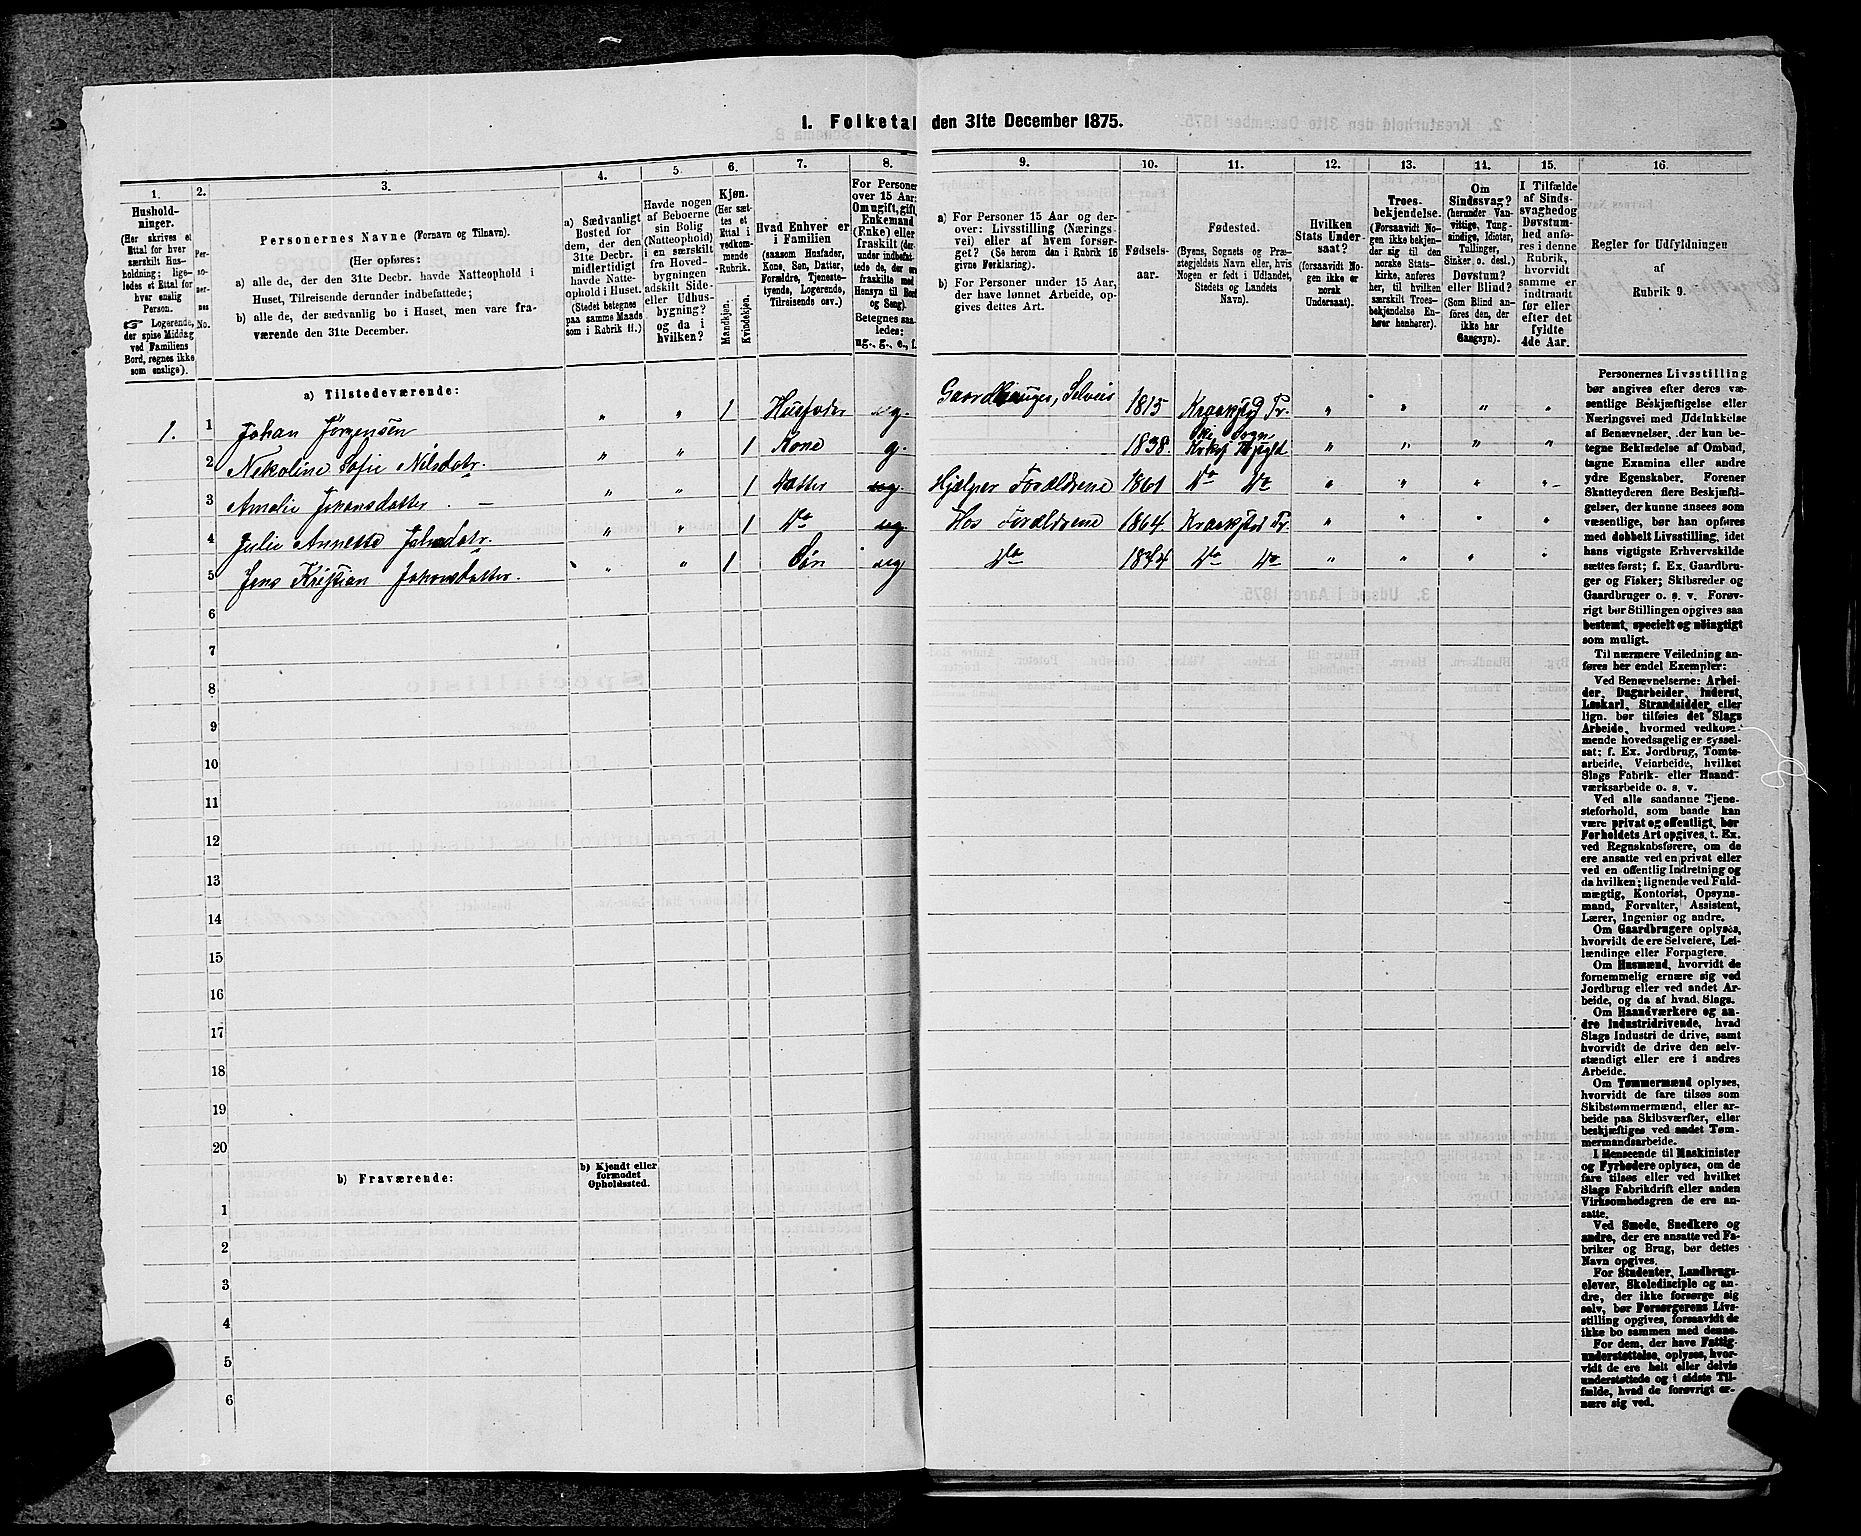 1. Folketal den 31te December 1875.
1. 2. 3. 4. 5. 6. 7. 8. 9. 10. 11. 12. 13. 14. 15. 16.
Hushold-
ninger.
(Her skrives et
Ettal for hver
særskilt Hus-
holdning; lige-
ledes et Ettal for
hver enslig
Person.
☞ Logerende,
der spise Middag
ved Familiens
Bord, regnes ikke
som enslige).
Per-
so-
ner-
nes
No.
Personernes Navne (Fornavn og Tilnavn).
(Her opføres:
a) alle de, der den 31te Decbr. havde Natteophold i
Huset, Tilreisende derunder indbefattede;
b) alle de, der sædvanlig bo i Huset, men vare fra-
værende den 31te December.
a) Sædvanligt
Bosted for
dem, der den
31te Decbr.
midlertidigt
havde Natte-
ophold i Huset.
(Stedet betegnes
paa samme Maade
som i Rubrik 11.)
Havde nogen
af Beboerne
sin Bolig
(Natteophold)
i en særskilt
fra Hoved-
bygningen
adskilt Side-
eller Udhus-
bygning?
og da i
hvilken?
Kjøn.
(Her sæt-
tes et
Ettal i
vedkom-
mende
Rubrik.
Mandkjøn.
Kvindekjøn.
Hvad Enhver er
i Familien
(saasom Husfader,
Kone, Søn, Datter,
Forældre, Tjeneste-
tyende, Logerende,
Tilreisende osv.)
For Personer
over 15 Aar:
Om ugift, gift,
Enkemand
(Enke) eller
fraskilt (der-
under indbefat-
tede de, der ere
fraskilte med
Hensyn til Bord
og Seng).
Betegnes saa-
ledes:
ug., g., e., f.
a) For Personer 15 Aar og der-
over: Livsstilling (Nærings-
vei) eller af hvem forsør-
get? (Se herom den i Rubrik 16
givne Forklaring).
b) For Personer under 15 Aar,
der have lønnet Arbeide, op-
gives dettes Art.
Fødsels-
aar.
Fødested.
(Byens, Sognets og Præ-
stegjeldets Navn eller, hvis
Nogen er født i Udlandet,
Stedets og Landets
Navn).
Hvilken
Stats Under-
saat?
(forsaavidt No-
gen ikke er
norsk
Undersaat).
Troes-
bekjendelse.
(Forsaavidt No-
gen ikke bekjen-
der sig til den
norske Stats-
kirke, anføres
her, til hvilken
særskilt Troes-
bekjendelse En-
hver henhører).
Om
Sindssvag?
(herunder Van-
vittige, Tung-
sindige, Idioter,
Tullinger,
Sinker o. desl.)
Døvstum?
eller Blind?
(Som Blind an-
føres den, der
ikke har
Gangsyn).
I Tilfælde
af Sinds-
svaghed og
Døvstum-
hed anfø-
res i denne
Rubrik,
hvorvidt
samme er
indtraadt
før eller
efter det
fyldte
4de Aar.
Regler for Udfyldningen
af
Rubrik 9.
a) Tilstedeværende:
1. 1 Johan Jørgensen " " 1 Husfader ug. Gaardbruger, Selveier 1815 Kraakstad Pr. " " " "
Ski Sogn
2 Nekoline Sofie Nilsdatr. " " 1 Kone g. 1838. " " " "
3 Amalie Johansdatter. — " " 1 Datter ug. Hjelper Forældrene 1861 Do Do " " " "
4 Julie Annette Johsdatr. " " 1 Do ug Hos Forældrene 1864 Kraakstad Pr. " " " "
5 Jens Kristian Johansdatter. " " 1 Søn ug Do Do Do " " " "
6
7
8
9
10
11
12
13
14
15
16
17
18
19
20
b) Fraværende:
b) Kjendt eller
formodet
Opholdssted.
1
2
3
4
5
6
Personernes Livsstilling
bør angives efter deres væ-
sentlige Beskjæftigelse eller
Næringsvei med Udelukkelse
af Benævnelser, der kun be-
tegne Beklædelse af Ombud,
tagne Examina eller andre
ydre Egenskaber. Forener
Skatteyderen flere Beskjæfti-
gelser, der kunne ansees som
væsentlige, bør han opføres
med dobbelt Livsstilling, idet
hans vigtigste Erhvervskilde
sættes først; f. Ex. Gaardbru-
ger og Fisker; Skibsreder og
Gaardbruger o. s. v. Forøv-
rigt bør Stillingen opgives saa
bestemt, specielt og nøiagtigt
som muligt.
Til nærmere Veiledning an-
føres her endel Exempler:
Ved Benævnelserne: Arbei-
der, Dagarbeider, Inderst,
Løskarl, Strandsidder eller
lign. bør tilføies det Slags
Arbeide, hvormed vedkom-
mende hovedsagelig er syssel-
sat; f. Ex. Jordbrug, Tomte-
arbeide, Veiarbeide, hvilket
Slags Fabrik- eller Haand-
værksarbeide o. s. v.
Ved alle saadanne Tjene-
steforhold, som baade kan
være privat og offentligt, bør
Forholdets Art opgives, t. Ex.
ved Regnskabsførere, om de
ere ansatte ved en privat eller
ved en offentlig Indretning og
da hvilken; lignende ved Fuld-
mægtig, Kontorist, Opsyns-
mand, Forvalter, Assistent,
Lærer, Ingeniør og andre.
Om Gaardbrugere oplyses,
hvorvidt de ere Selveiere, Lei-
lændinge eller Forpagtere.
Om Husmænd, hvorvidt de
fornemmelig ernære sig ved
Jordbrug eller ved andet Ar-
beide, og da af hvad Slags.
Om Haandværkere og an-
dre Industridrivende, hvad
Slags Industri de drive, samt
hvorvidt de drive den selv-
stændigt eller ere i andres
Arbeide.
Om Tømmermænd oplyses,
hvorvidt de fare tilsøs som
Skibstømmermænd, eller ar-
beide paa Skibsværfter, eller
beskjæftiges ved andet Tøm-
mermandsarbeide.
I Henseende til Maskinister
og Fyrbødere oplyses, om de
fare tilsøs eller ved hvilket
Slags Fabrikdrift eller anden
Virksomhedsgren de ere an-
satte.
Ved Smede, Snedkere og
andre, der ere ansatte ved Fa-
briker og Brug, bør dettes
Navn opgives.
For Studenter, Landbrugs-
elever, Skoledisciple og an-
dre, der ikke forsørge sig
selv, bør Forsørgerens Livs-
stilling opgives, forsaavidt de
ikke bo sammen med denne.
For dem, der have Fattig-
understøttelse, oplyses, hvor-
vidt de ere helt eller delvis
understøttede og i sidste Til-
fælde, hvad de forøvrigt er-
nære sig ved.